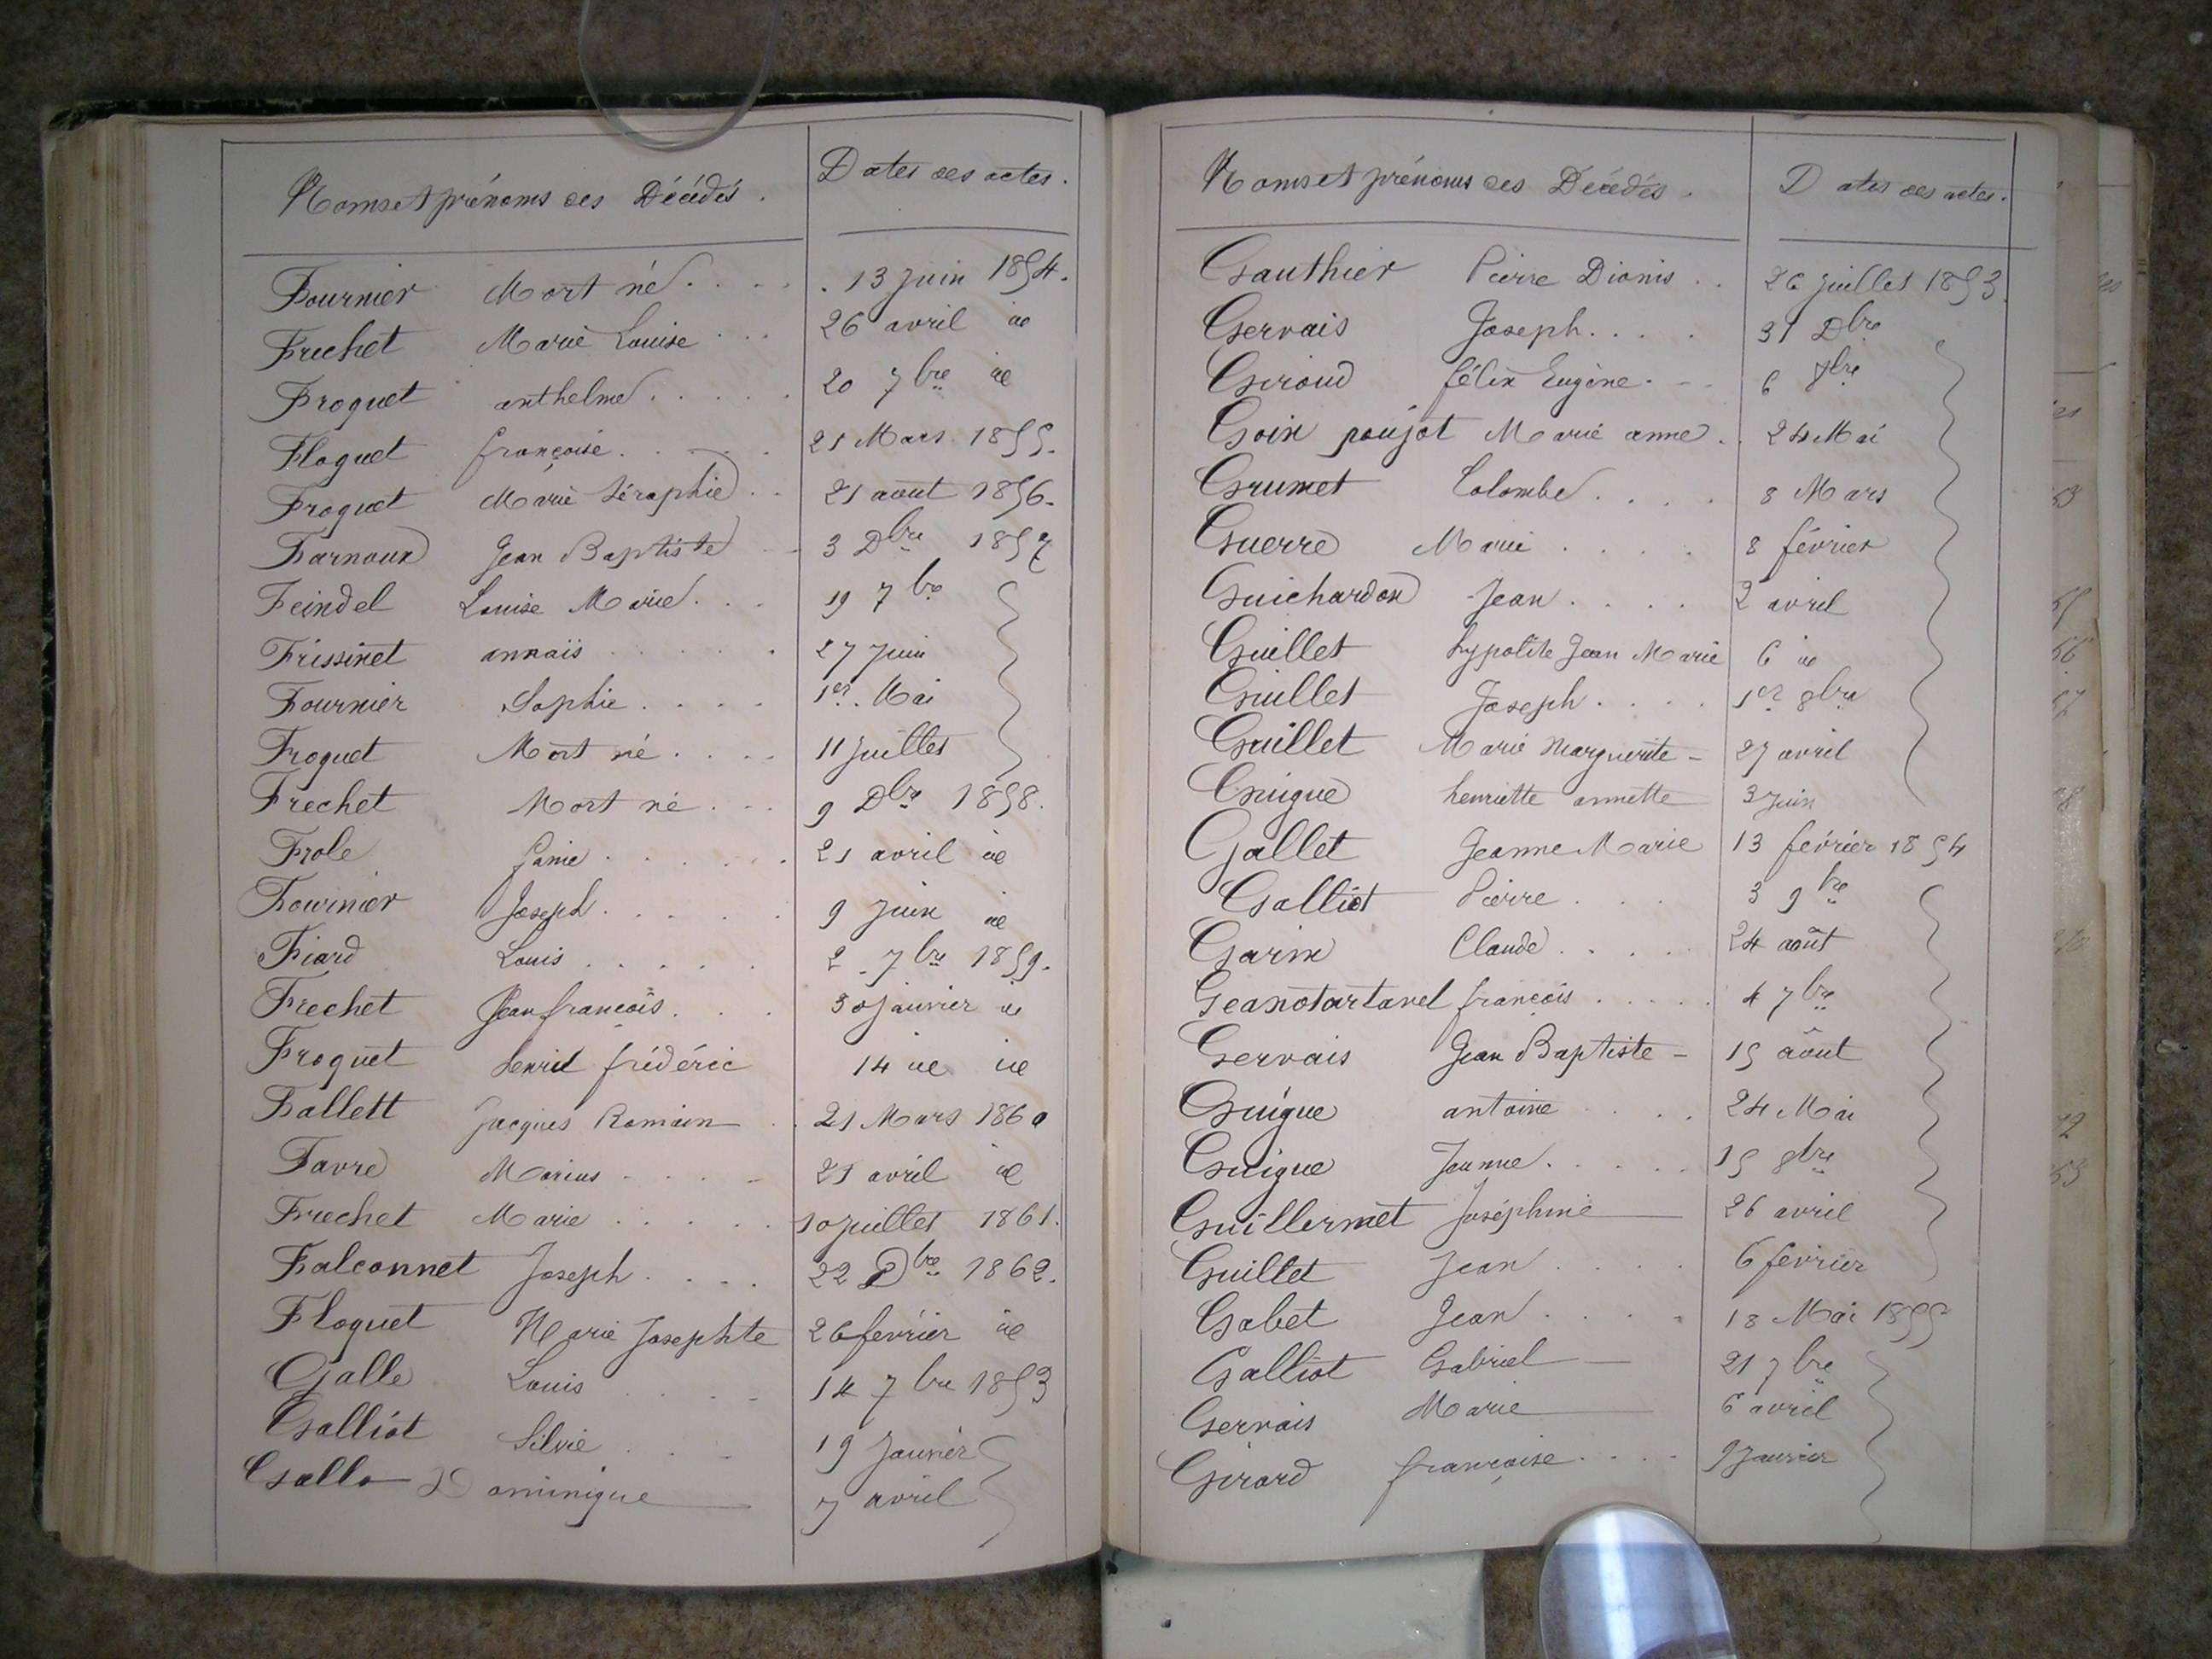 Noms et prénoms des Décédés. Dates des actes.
Fournier Mort né. . . . . 13 juin 1854.
Frechet Marie Louise . . . 26 avril id
Froquet anthelme . . . . . 20 7bre id
Floquet françoise . . . . . 21 Mars 1855.
Froquet Marie Séraphie . . 21 aout 1856.
Farnoux Jean Baptiste - 3 Dbre 1857
Feindel Louise Marie . . . 19 7bre
Frissinet annaïs . . . . . . 27 Juin
Fournier Sophie . . . . 1er. Mai
Froquet Mort né . . . . 11 Juillet
Frechet Mort né . . . 9 Dbre 1858.
Frole . . . . . . 21 avril id
Fournier Joseph . . . . . 9 Juin id
Fiard Louis . . . . . 2. 7bre 1859.
Frechet Jean françois . . . 30 janvier id
Froquet henri frédéric 14 id id
Fallett Jacques Romain . 21 Mars 1860
Favre Marius . . . . 21 avril id
Frechet Marie . . . . . 10 juillet 1861.
Falconnet Joseph . . . . 22 Dbre 1862.
Floquet Marie Josephte 26 fevrier id
Galle Louis . . . . 14 7bre 1853
Galliot Silvie . . . 19 Janvier
Gallo Dominique 7 avril
Noms et prénoms des Décédés. Dates des actes.
Gauthier Pierre Dionis . . 26 juillet 1853.
Gervais Joseph. . . . 31 Dbre
Giroud félix Eugène. - - 6
Goin poujot Marie anne . . 24 Mai
Grumet Colombe . . . . 8 Mars
Guerre Marie . . . . 8 février
Guichardon Jean . . . . 2 avril
Guillet hypolite Jean Marie 6 id
Guillet Joseph . . . . 1er 8bre
Guillet Marie Marguerite - 27 avril
Guigue henriette annette 3 Juin
Gallet Jeanne Marie 13 février 1854
Galliot Pierre . . . 3 9bre
Garin Claude . . . . 24 août
Geanotartavel françois . . . . . 4 7bre
Gervais Jean Baptiste - 15 août
Guigue antoine . . . . 24 Mai
Guigue . . . . . 15 8bre
Guillermet Joséphine 26 avril
Guillet Jean . . . . 6 fevrier
Gabet Jean . . . . 18 Mai 1855
Galliot Gabriel - 21 7bre
Gervais Marie 6 avril
Girard françoise . . . . 9 Janvier